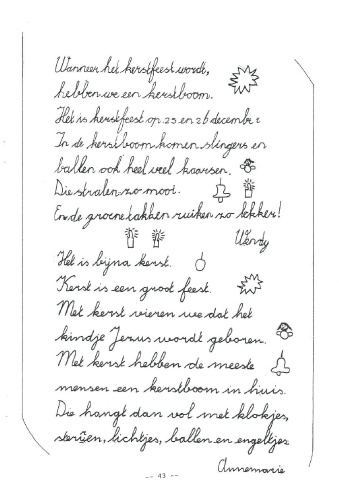 Wanneer het kerstfeest wordt,
hebben we een kerstboom.
Het is kerstfeest op 25 en 26 december
In de kerstboom komen slingers en
ballen ook heel veel kaarsen.
Die stralen zo mooi.
En de groene takken ruiken zo lekker!
Wendy
Het is bijna kerst.
Kerst is een groot feest.
Met kerst vieren we dat het
kindje Jezus wordt geboren.
Met kerst hebben de meeste
mensen een kerstboom in huis.
Die hangt dan vol met klokjes,
sterren, lichtjes, ballen en engeltjes.
Annemarie
-- 43 --